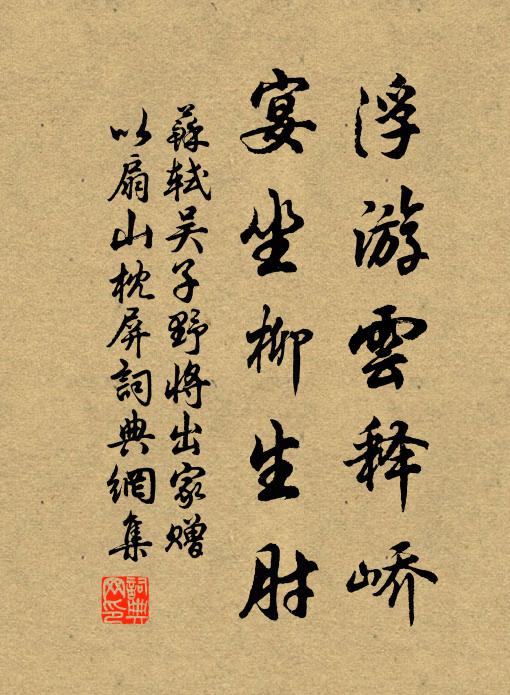 浮游雲释峤
宴坐柳生肘
蘇轼吴子野将出家赠
以扇山枕屏詞典網集
詞典网印